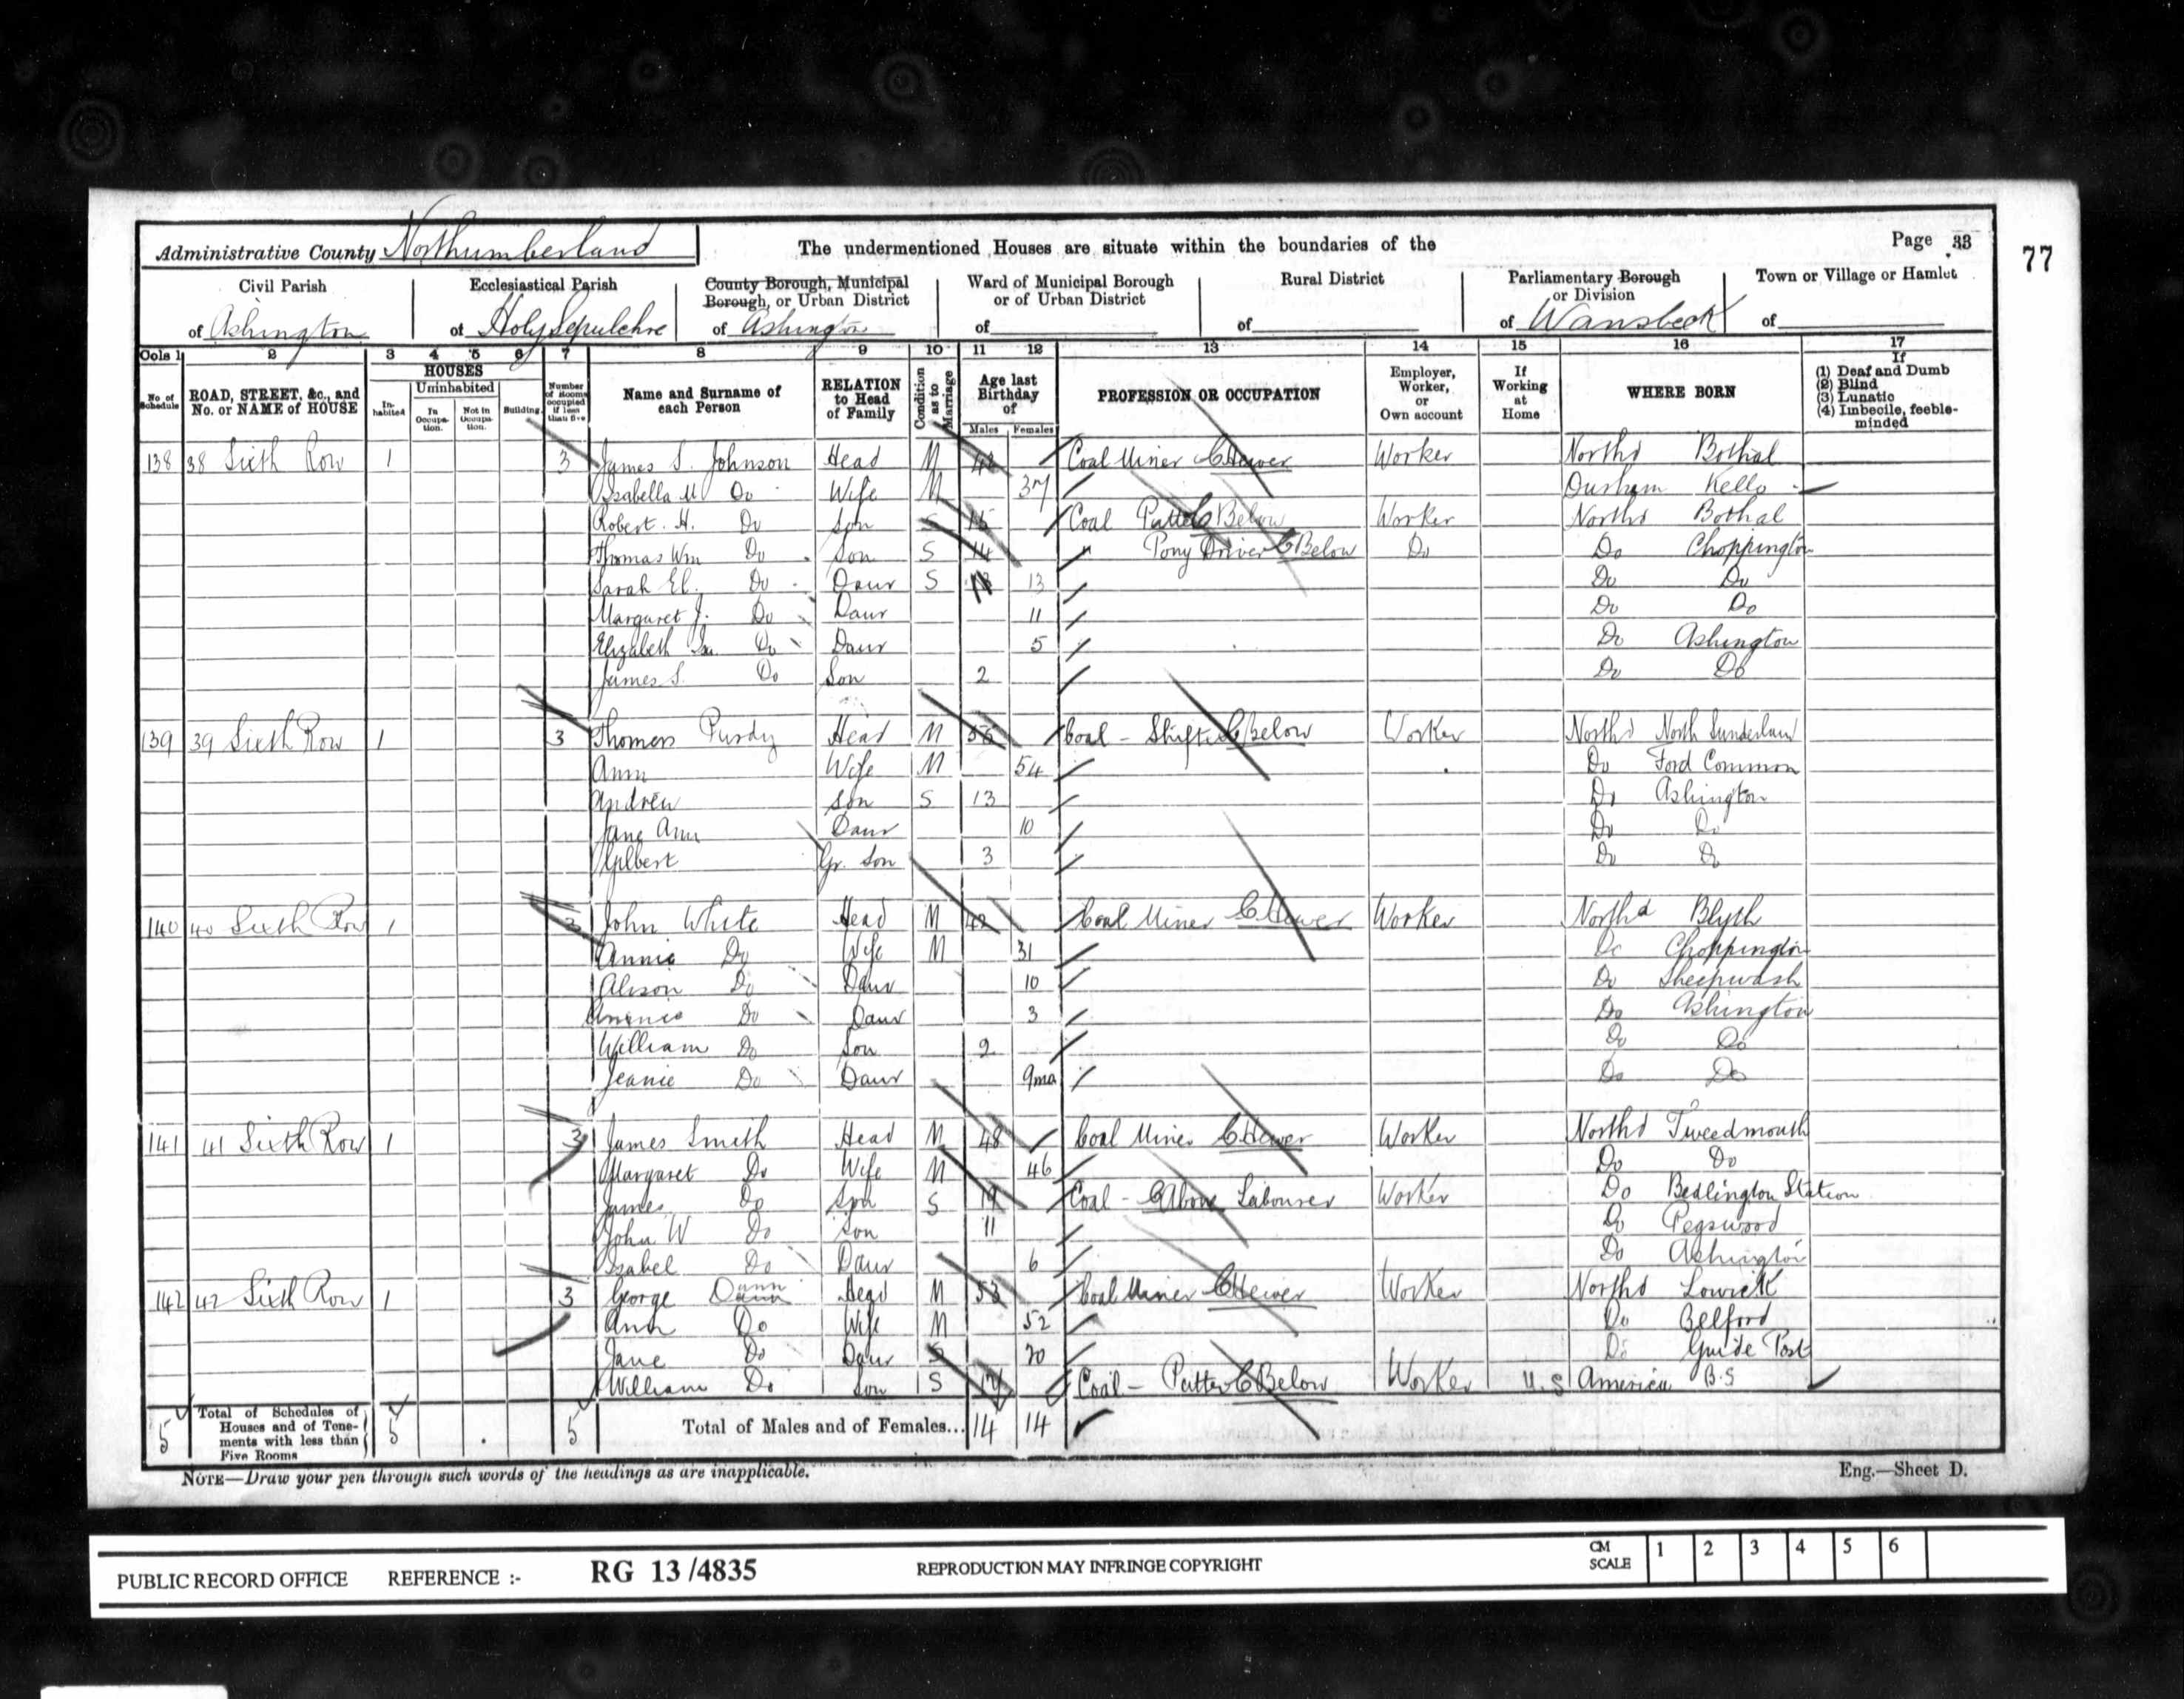 Administrative County Northumberland
The undermentioned Houses are situate within the boundaries of the
Page 33
77
Civil Parish of Ashington
Ecclesiastical Parish of Holy Sepulchre
County Borough, Municipal Borough, or Urban District of Ashington
Ward of Municipal Borough or of Urban District of
Rural District of
Parliamentary Borough or Division of Wansbeck
Town or Village or Hamlet of
Cols 1 2 3 4 5 6 7 8 9 10 11 12 13 14 15 16 17
No. of Schedule
ROAD, STREET, &c., and No. or NAME of HOUSE
HOUSES
Inhabited
Uninhabited
In Occupation.
Not in Occupation.
Building.
Number of Rooms occupied if less than five
Name and Surname of each Person
RELATION to Head of Family
Condition as to Marriage
Age last Birthday of
Males Females
PROFESSION OR OCCUPATION
Employer, Worker, or Own account
If Working at Home
WHERE BORN
If (1) Deaf and Dumb (2) Blind (3) Lunatic (4) Imbecile, feeble-minded
138 38 Sixth Row 1 3 James S. Johnson Head M 42 Coal Miner Hewer Worker Northd Bothal
Isabella M Do Wife M 37 Durham Kello
Robert. H. Do Son S 15 Coal Putter Below Worker Northd Bothal
Thomas Wm Do Son S 14 " Pony Driver Below Do Do Choppington
Sarah El. Do Daur S 13 Do Do
Margaret J. Do Daur 11 Do Do
Elizabeth Do Daur 5 Do Ashington
James S. Do Son 2 Do Do
139 39 Sixth Row 1 3 Thomas Purdy Head M Coal - Shifter Below Worker Northd North Sunderland
Ann Wife M 54 Do Ford Common
Andrew Son S 13 Do Ashington
Jane Ann Daur 10 Do Do
Gilbert Gr. Son 3 Do Do
140 40 Sixth Row 1 3 John White Head M 42 Coal Miner Hewer Worker Northd Blyth
Annie Do Wife M 31 Do Choppington
Alison Do Daur 10 Do Sheepwash
Do Daur 3 Do Ashington
William Do Son 2 Do Do
Jeanie Do Daur 9mo Do Do
141 41 Sixth Row 1 3 James Smith Head M 48 Coal Miner Hewer Worker Northd Tweedmouth
Margaret Do Wife M 46 Do Do
James Do Son S 19 Coal - Above Labourer Worker Do Bedlington Station
John W Do Son 11 Do Pegswood
Isabel Do Daur 6 Do Ashington
142 42 Sixth Row 1 3 George Dunn Head M 53 Coal Miner Hewer Worker Northd Lowick
Ann Do Wife M 52 Do Belford
Jane Do Daur S 20 Do Guide Post
William Do Son S 17 Coal - Putter Below Worker U.S America B.S
5 Total of Schedules of Houses and of Tenements with less than Five Rooms 5 5 Total of Males and of Females... 14 14
NOTE—Draw your pen through such words of the headings as are inapplicable.
Eng.—Sheet D.
PUBLIC RECORD OFFICE REFERENCE :- RG 13/4835 REPRODUCTION MAY INFRINGE COPYRIGHT CM SCALE 1 2 3 4 5 6